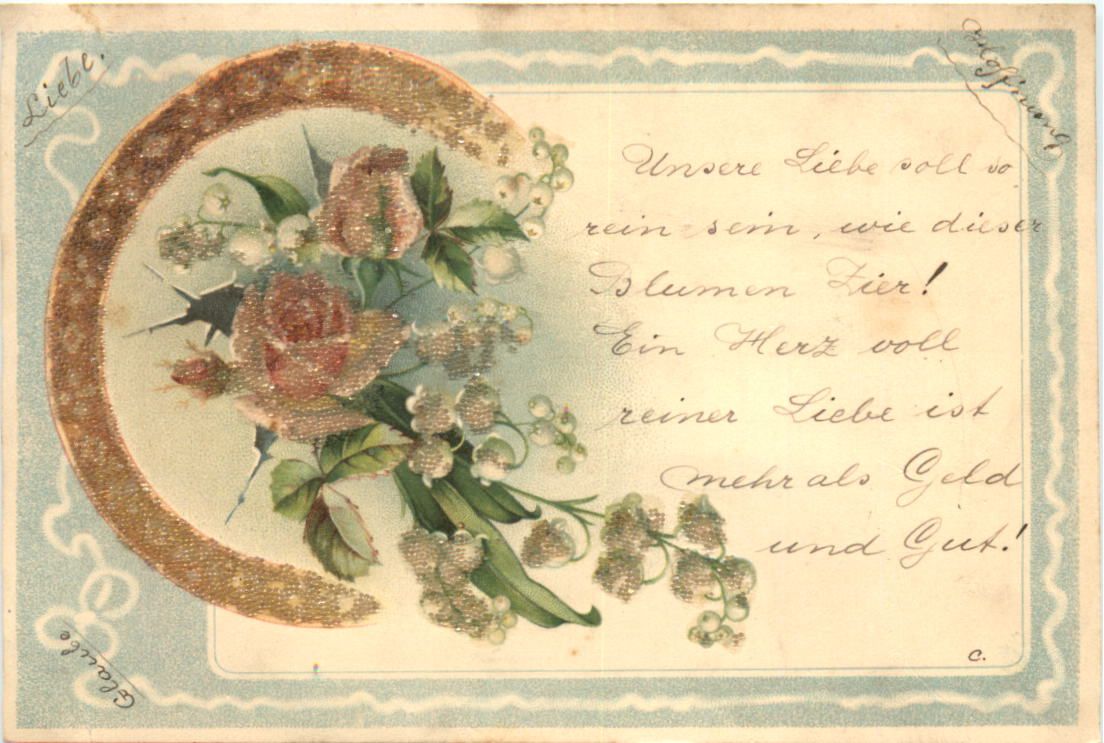 Liebe.
Hoffnung
Unsere Liebe soll so
rein sein, wie dieser
Blumen Zier!
Ein Herz voll
reiner Liebe ist
mehr als Geld
und Gut!
C.
Glaube